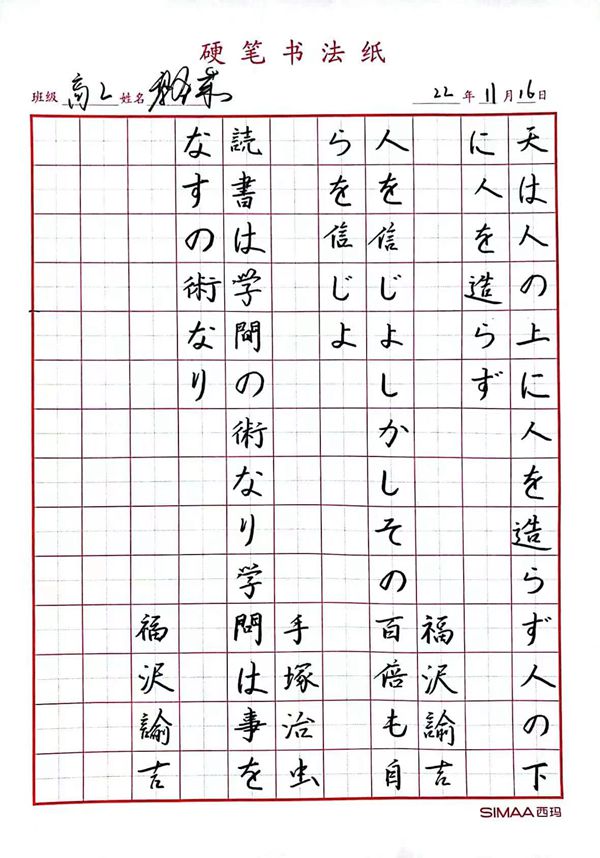 硬笔书法纸
班级 高2 姓名
22年11月16日
天は人の上に人を造らず人の下
に人を造らず
福沢諭吉
人を信じよしかしその百倍も自
らを信じよ
手塚治虫
読書は学間の術なり学問は事を
なすの術なり
福沢諭吉
SIMAA西玛